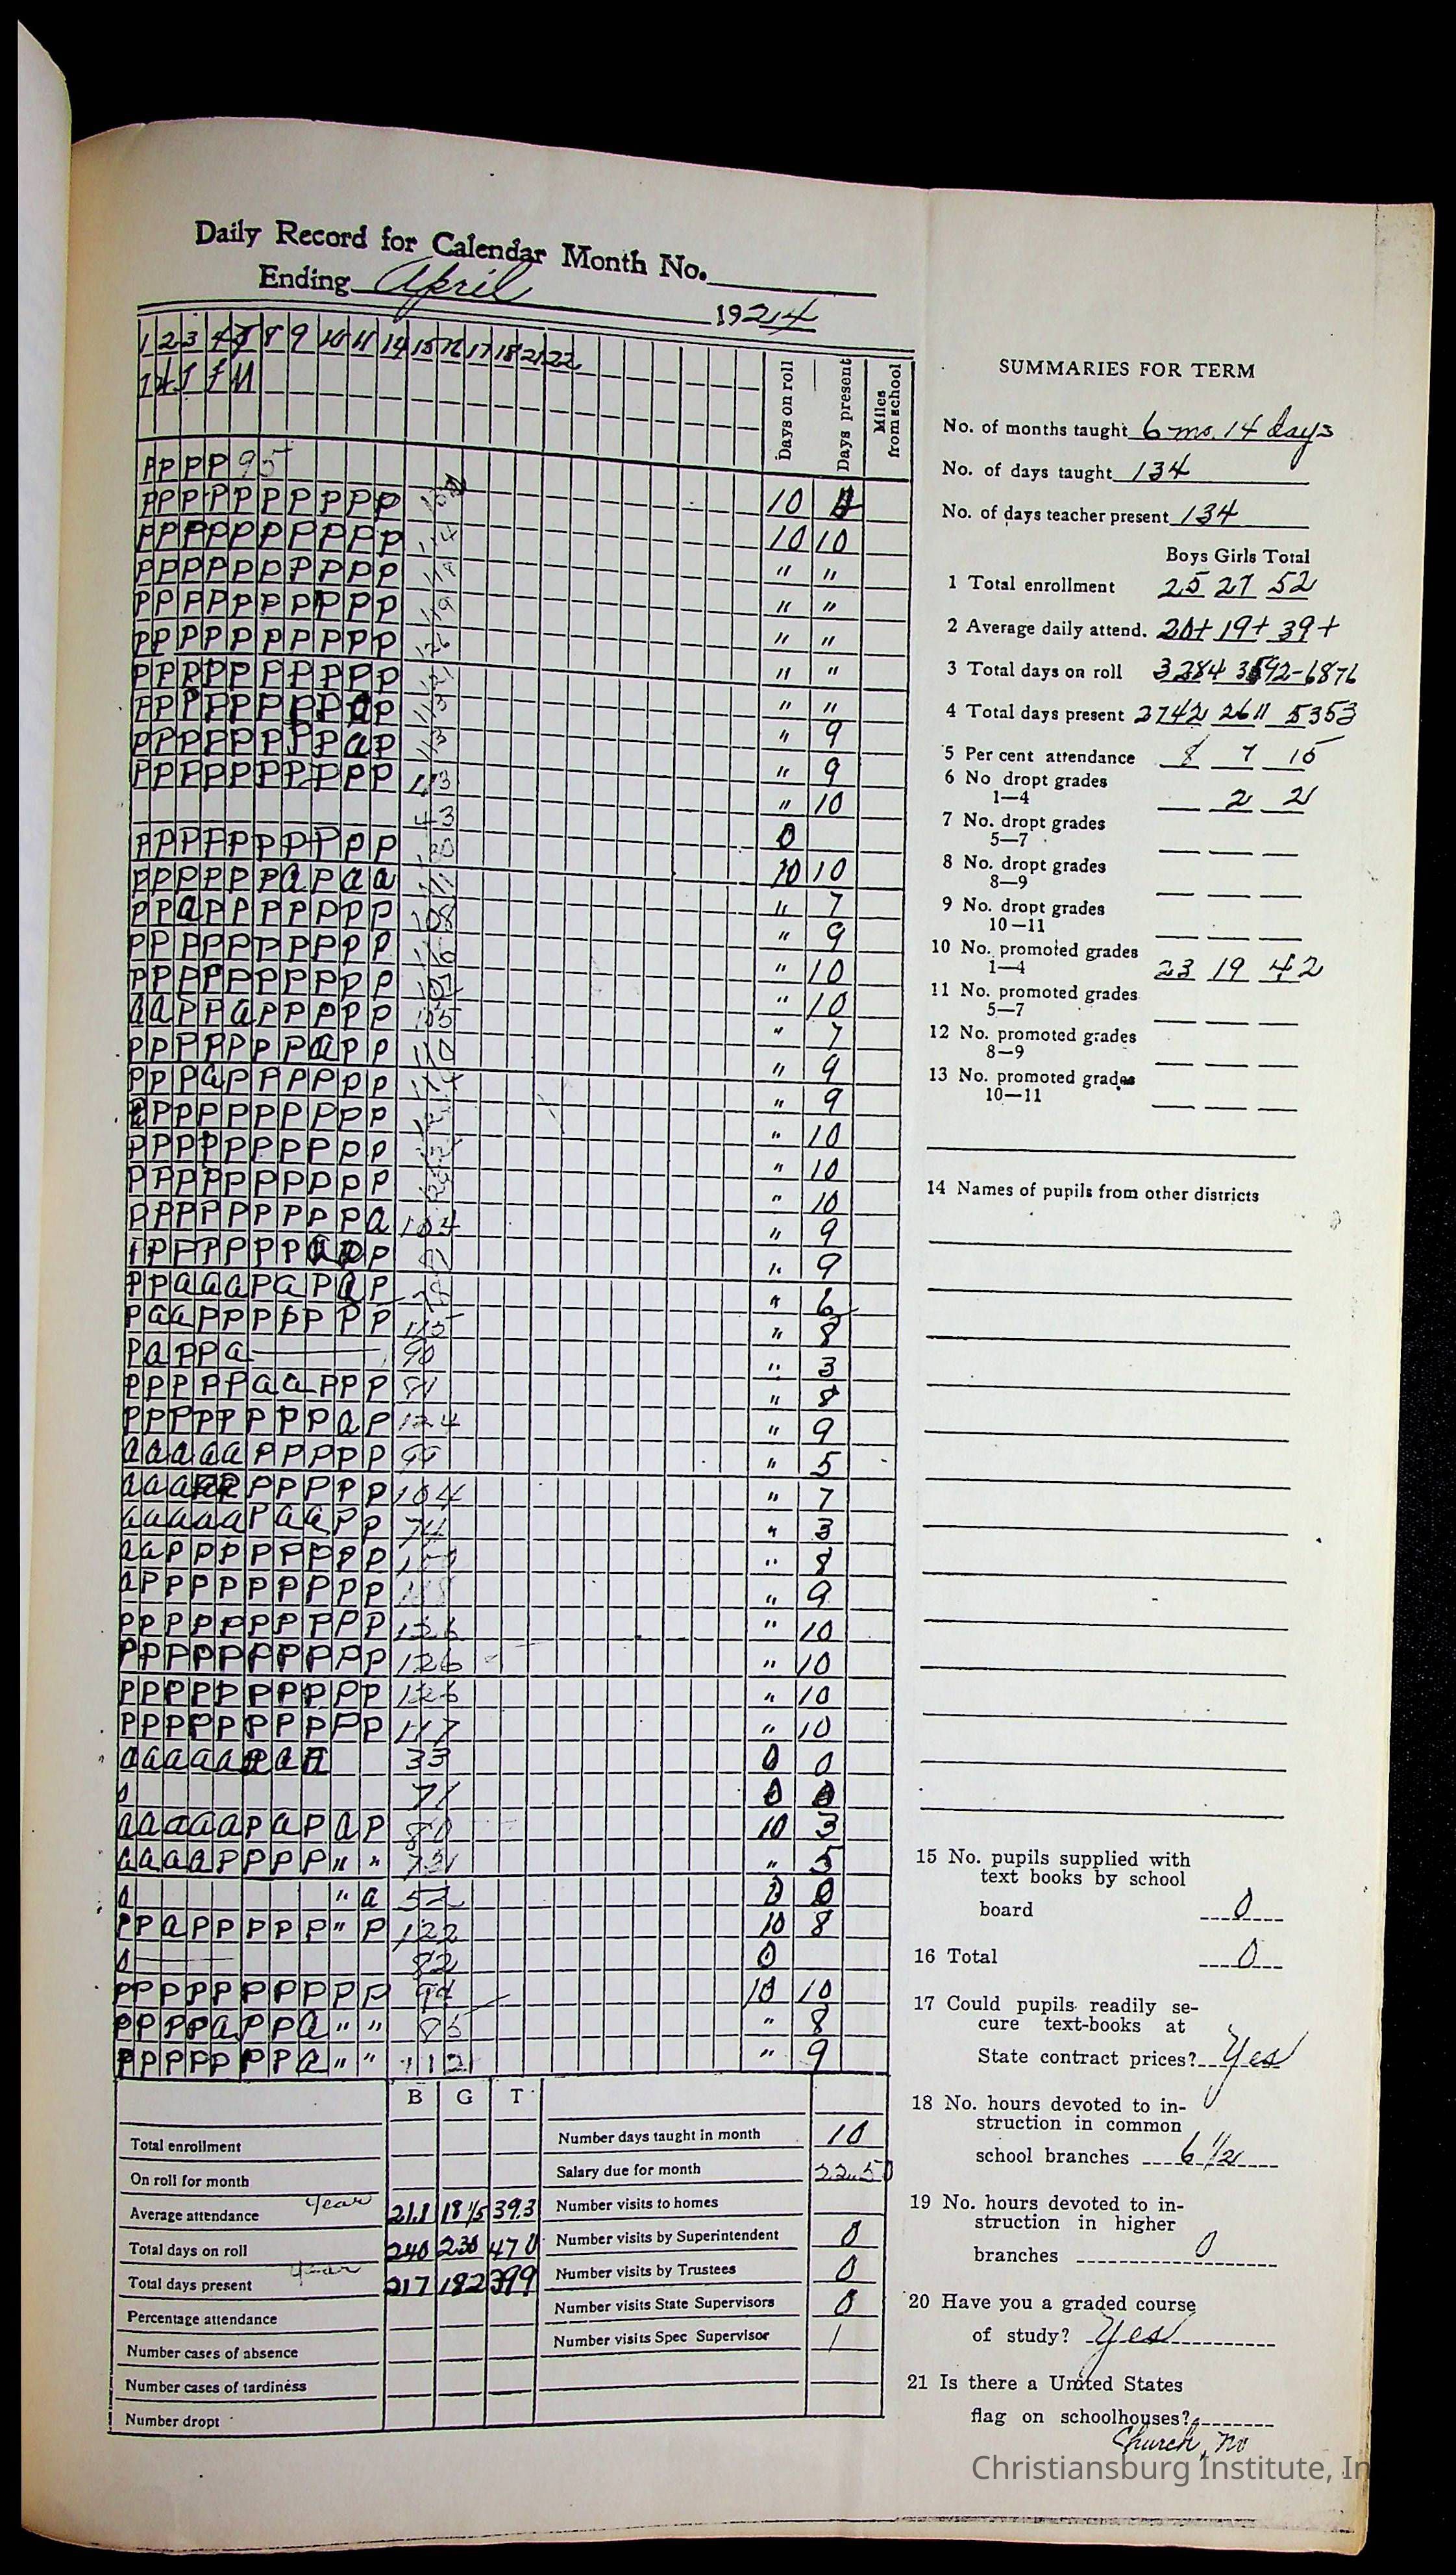 Daily Record for Calendar Month No.
Ending April 1924
1 2 3 4 7 8 9 10 11 14 15 16 17 18 21 22
Days on roll
Days present
Miles from school
P P P P 95
P P P P P P P P P P
10
P P P P P P P P P P 114
10 10
P P P P P P P P P P
" "
P P P P P P P P P P 119
" "
P P P P P P P P P P 126
" "
P P P P P P P P P P
" "
P P P P P P P P a P 113
" "
P P P P P P P P a P
" 9
P P P P P P P P P P 113
" 9
43
" 10
P P P P P P P P P P
0
P P P P P P a P a a
10 10
P P a P P P P P P P 108
" 7
P P P P P P P P P P 116
" 9
P P P P P P P P P P
" 10
a a P P a P P P P P 105
" 10
P P P P P P P a P P 110
" 7
P P P a P P P P P P 114
" 9
P P P P P P P P P
" 9
P P P P P P P P P P
" 10
P P P P P P P P P P
" 10
P P P P P P P P P a 104
" 10
P P P P P P a P
" 9
P P a a a P a P a P 78
" 9
P a a P P P P P P P 115
" 6
P a P P a 90
" 8
P P P P P a a P P P 81
" 3
P P P P P P P P a P 124
" 8
a a a a a P P P P P 99
" 9
a a a P P P P P P P 104
" 5
a a a a a P a a P P 74
" 7
a a P P P P P P P P
" 3
a P P P P P P P P P 118
" 8
P P P P P P P P P P 126
" 9
P P P P P P P P P P 126
" 10
P P P P P P P P P P 126
" 10
P P P P P P P P P P 117
" 10
a a a a a a 33
" 10
0 71
0 0
a a a a a P a P a P 80
0 0
a a a a P P P P " " 73
10 3
0 " a 52
" 5
P P a P P P P P " P 122
0 0
0 82
10 8
P P P P P P P P P P 94
0
P P P P a P P a " " 86
10 10
P P P P P P P a " " 112
" 8
" 9
B G T
Total enrollment
On roll for month
Average attendance Year 21.1 18 1/5 39.3
Total days on roll 240 230 470
Total days present Year 217 182 399
Percentage attendance
Number cases of absence
Number cases of tardiness
Number dropt
Number days taught in month 10
Salary due for month 22.50
Number visits to homes
Number visits by Superintendent 0
Number visits by Trustees 0
Number visits State Supervisors 0
Number visits Spec Supervisor 1
SUMMARIES FOR TERM
No. of months taught 6 mo. 14 days
No. of days taught 134
No. of days teacher present 134
Boys Girls Total
1 Total enrollment 25 27 52
2 Average daily attend. 20+ 19+ 39+
3 Total days on roll 3284 3592-6876
4 Total days present 2742 2611 5353
5 Per cent attendance 8 7 15
6 No dropt grades
1—4 2 2
7 No. dropt grades
5—7
8 No. dropt grades
8—9
9 No. dropt grades
10—11
10 No. promoted grades
1—4 23 19 42
11 No. promoted grades
5—7
12 No. promoted grades
8—9
13 No. promoted grades
10—11
14 Names of pupils from other districts
15 No. pupils supplied with
text books by school
board 0
16 Total 0
17 Could pupils readily se-
cure text-books at
State contract prices? Yes
18 No. hours devoted to in-
struction in common
school branches 6 1/2
19 No. hours devoted to in-
struction in higher
branches 0
20 Have you a graded course
of study? Yes
21 Is there a United States
flag on schoolhouses?
Church, no
Christiansburg Institute, In